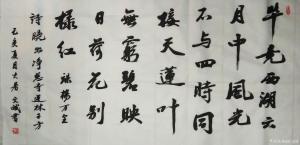 毕竟西湖六
月中风光
不与四时同
接天莲叶
无穷碧映
日荷花别
样红 录杨万里
诗晓出净慈寺送林子方